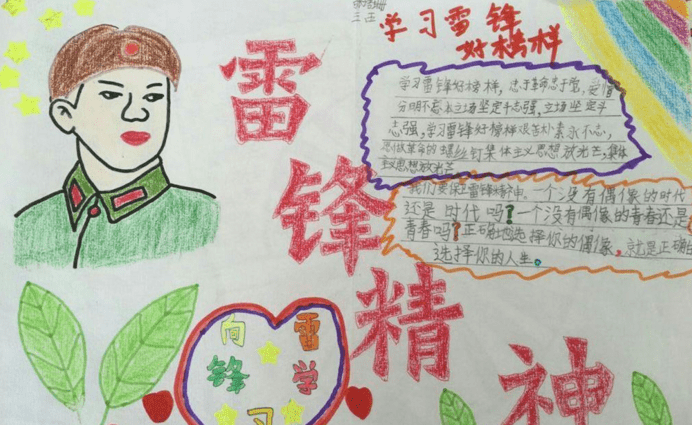 三 五
学习雷锋
好榜样
学习雷锋好榜样，忠于革命忠于党，爱憎
分明不忘本立场坚定斗志强，立场坚定斗
志强，学习雷锋好榜样艰苦朴素永不忘，
愿做革命的螺丝钉集体主义思想放光芒，集体
主义思想放光芒
我们要保
雷锋精神。一个没有偶像的时代
还是时代吗？一个没有偶像的青春还是
青春吗？正确地选择你的偶像，就是正确的
选择你的人生。
雷锋精神
向雷
锋学
习